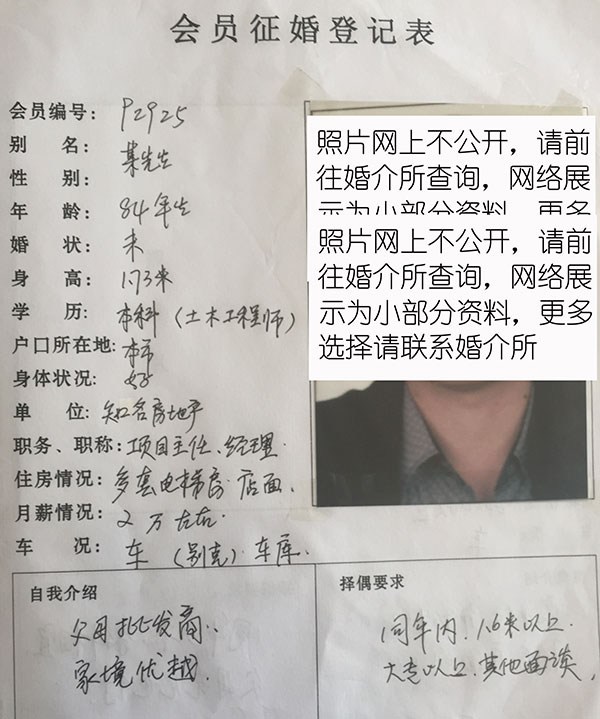 会员征婚登记表
会员编号: P2925
别 名: 某先生
性 别:
年 龄: 84年生
婚 状: 未
身 高: 1.73米
学 历: 本科(土木工程师)
户口所在地: 本市
身体状况: 好
单 位: 知名房地产
职务、职称: 项目主任、经理.
住房情况: 多套电梯房. 店面.
月薪情况: 2万左右.
车 况: 车(别克)车库.
照片网上不公开,请前
往婚介所查询,网络展
示为小部分资料,更多
照片网上不公开,请前
往婚介所查询,网络展
示为小部分资料,更多
选择请联系婚介所
自我介绍
父母批发商..
家境优越.
择偶要求
同年内. 1.6米以上.
大专以上. 其他面谈,